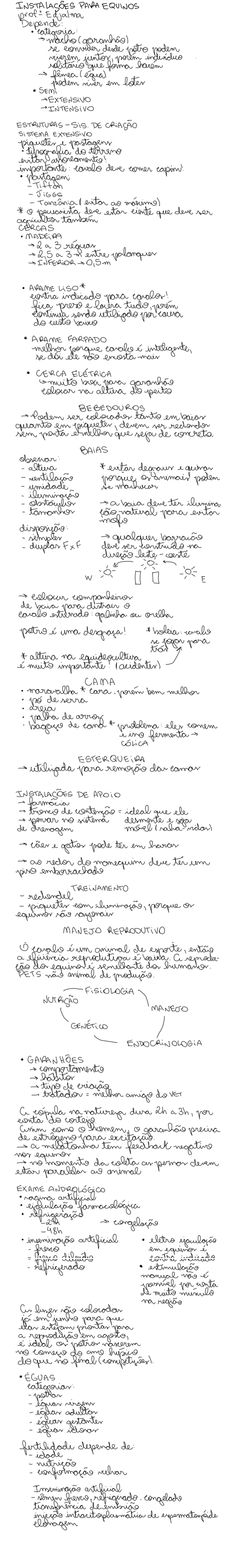 INSTALAÇÕES PARA EQUINOS
profª Edjalma
Depende:
• categoria
→ macho (garanhão)
se conviver desde potro podem
viverem juntos, porém indivíduo
solitário que forma harém
→ fêmea (égua)
podem viver em lotes
• Sem
→ EXTENSIVO
→ INTENSIVO
ESTRUTURAS - SIS. DE CRIAÇÃO
SISTEMA EXTENSIVO
piquetes e pastagem
• topografia do terreno
evitar afogamento
importante: cavalo deve comer capim
• pastagem
- Tifton
- Jiggs
- Tanzânia (evitar ao máximo)
* O pecuarista deve estar ciente que deve ser
agricultor também
CERCAS
• MADEIRA
→ 2 a 3 réguas
→ 2,5 a 3m entre palanques
→ INFERIOR → 0,5m
• ARAME LISO *
contra indicado para cavalos!
fica preso e lacera tudo, porém
continua sendo utilizado por causa
do custo baixo
• ARAME FARPADO
melhor porque cavalo é inteligente,
se dói ele não encosta mais
• CERCA ELÉTRICA
muito boa para garanhão
colocar na altura do peito
BEBEDOUROS
→ Podem ser colocados tanto em baias
quanto em piquetes, devem ser redondos
sem pontas e melhor que seja de concreto
BAIAS
observar:
- altura
- ventilação
- umidade
- iluminação
- obstáculo
- tamanhos
* evitar degraus e quinas
porque os animais podem
se machucar
→ a baia deve ter ilumina
ção natural para evitar
mofo
disposição:
- simples
- duplas F x F
→ qualquer barracão
deve ser construído na
direção leste - oeste
W E
→ colocar companheiros
de baia para distrair o
cavalo estilo galinha ou ovelha
potro é uma desgraça!
* baleia: cavalo
se joga para
trás
* altura na equideocultura
é muito importante (acidentes)
CAMA
• maravalha * cara, porém bem melhor
• pó de serra
• areia
• palha de arroz
• bagaço de cana * problema: eles comem
e isso fermenta →
CÓLICA
ESTERQUEIRA
→ utilizada para remoção das camas
INSTALAÇÕES DE APOIO
→ farmácia
→ tronco de contenção = ideal que ele
→ pensar no sistema desmonte e seja
de drenagem móvel
→ cães e gatos pode ter em haras
→ ao redor do manequim deve ter um
piso emborrachado
TREINAMENTO
- redondel
- piquetes com iluminação, porque os
equinos são sazonais
MANEJO REPRODUTIVO
O cavalo é um animal de esporte, então
a eficiência reprodutiva é baixa. A reprodu
ção do equino é semelhante dos humanos.
PETS não animal de produção.
FISIOLOGIA
NUTRIÇÃO
MANEJO
GENÉTICO
ENDOCRINOLOGIA
• GARANHÕES
→ comportamento
→ hábitos
→ tipo de criação
→ tratador = melhor amigo do VET
A cópula na natureza dura 2h a 3h, por
conta do cortejo
Assim como o homem, o garanhão precisa
de estrógeno para excitação
→ a melatonina tem feedback negativo
nos equinos
→ no momento da coleta as pernas devem
estar paralelas ao animal
EXAME ANDROLÓGICO
• vagina artificial
• ejaculação farmacológica
• refrigeração
- 24h → congelação
- 48h
• inseminação artificial
- fresco
- fresco diluído
- refrigerado
• eletro ejaculação
em equinos é
contra indicado
• estimulação
manual não é
possível por conta
de muito músculo
na região
As luzes são colocadas
já em junho para que
elas estejam prontas para
a reprodução em agosto,
é ideal os potros nascerem
no começo do ano hípico
do que no final (competições)
• ÉGUAS
categorias:
- potras
- éguas virgens
- éguas adultas
- éguas gestantes
- éguas idosas
fertilidade depende de:
- idade
- nutrição
- conformação vulvar
Inseminação artificial
- sêmen fresco, refrigerado, congelado
transferência de embrião
injeção intracitoplasmática de espermatozóide
clonagem